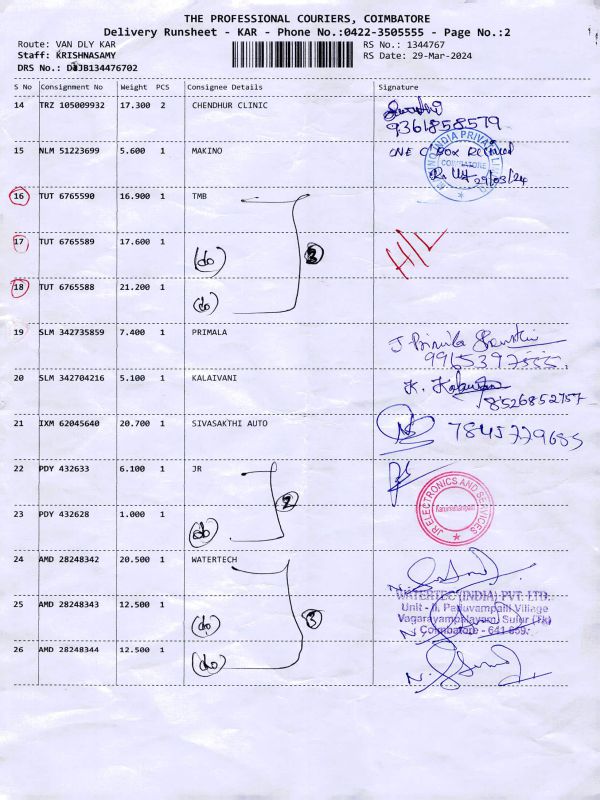 THE PROFESSIONAL COURIERS, COIMBATORE
Delivery Runsheet - KAR - Phone No.:0422-3505555 - Page No.:2
Route: VAN DLY KAR RS No.: 1344767
Staff: KRISHNASAMY RS Date: 29-Mar-2024
DRS No.: 134476702
S No Consignment No Weight PCS Consignee Details Signature
14 TRZ 105009932 17.300 2 CHENDHUR CLINIC
9361858579
15 NLM 51223699 5.600 1 MAKINO ONE BOX Received
INDIA PRIVATE
COIMBATORE
29/03/24
16 TUT 6765590 16.900 1 TMB
17 TUT 6765589 17.600 1 (do) 3 H/L
18 TUT 6765588 21.200 1 (do)
19 SLM 342735859 7.400 1 PRIMALA J
20 SLM 342704216 5.100 1 KALAIVANI K.
8526852757
21 IXM 62045640 20.700 1 SIVASAKTHI AUTO 7845779685
22 PDY 432633 6.100 1 JR
JR ELECTRONICS AND SERVICES
23 PDY 432628 1.000 1 (do) 2
24 AMD 28248342 20.500 1 WATERTECH
WATERTEC (INDIA) PVT. LTD.
Unit - II, Paduvampalli Village
25 AMD 28248343 12.500 1 (do) 3 Vagarayampalayam, Sulur (Tk)
Coimbatore - 641 659.
26 AMD 28248344 12.500 1 (do) N.